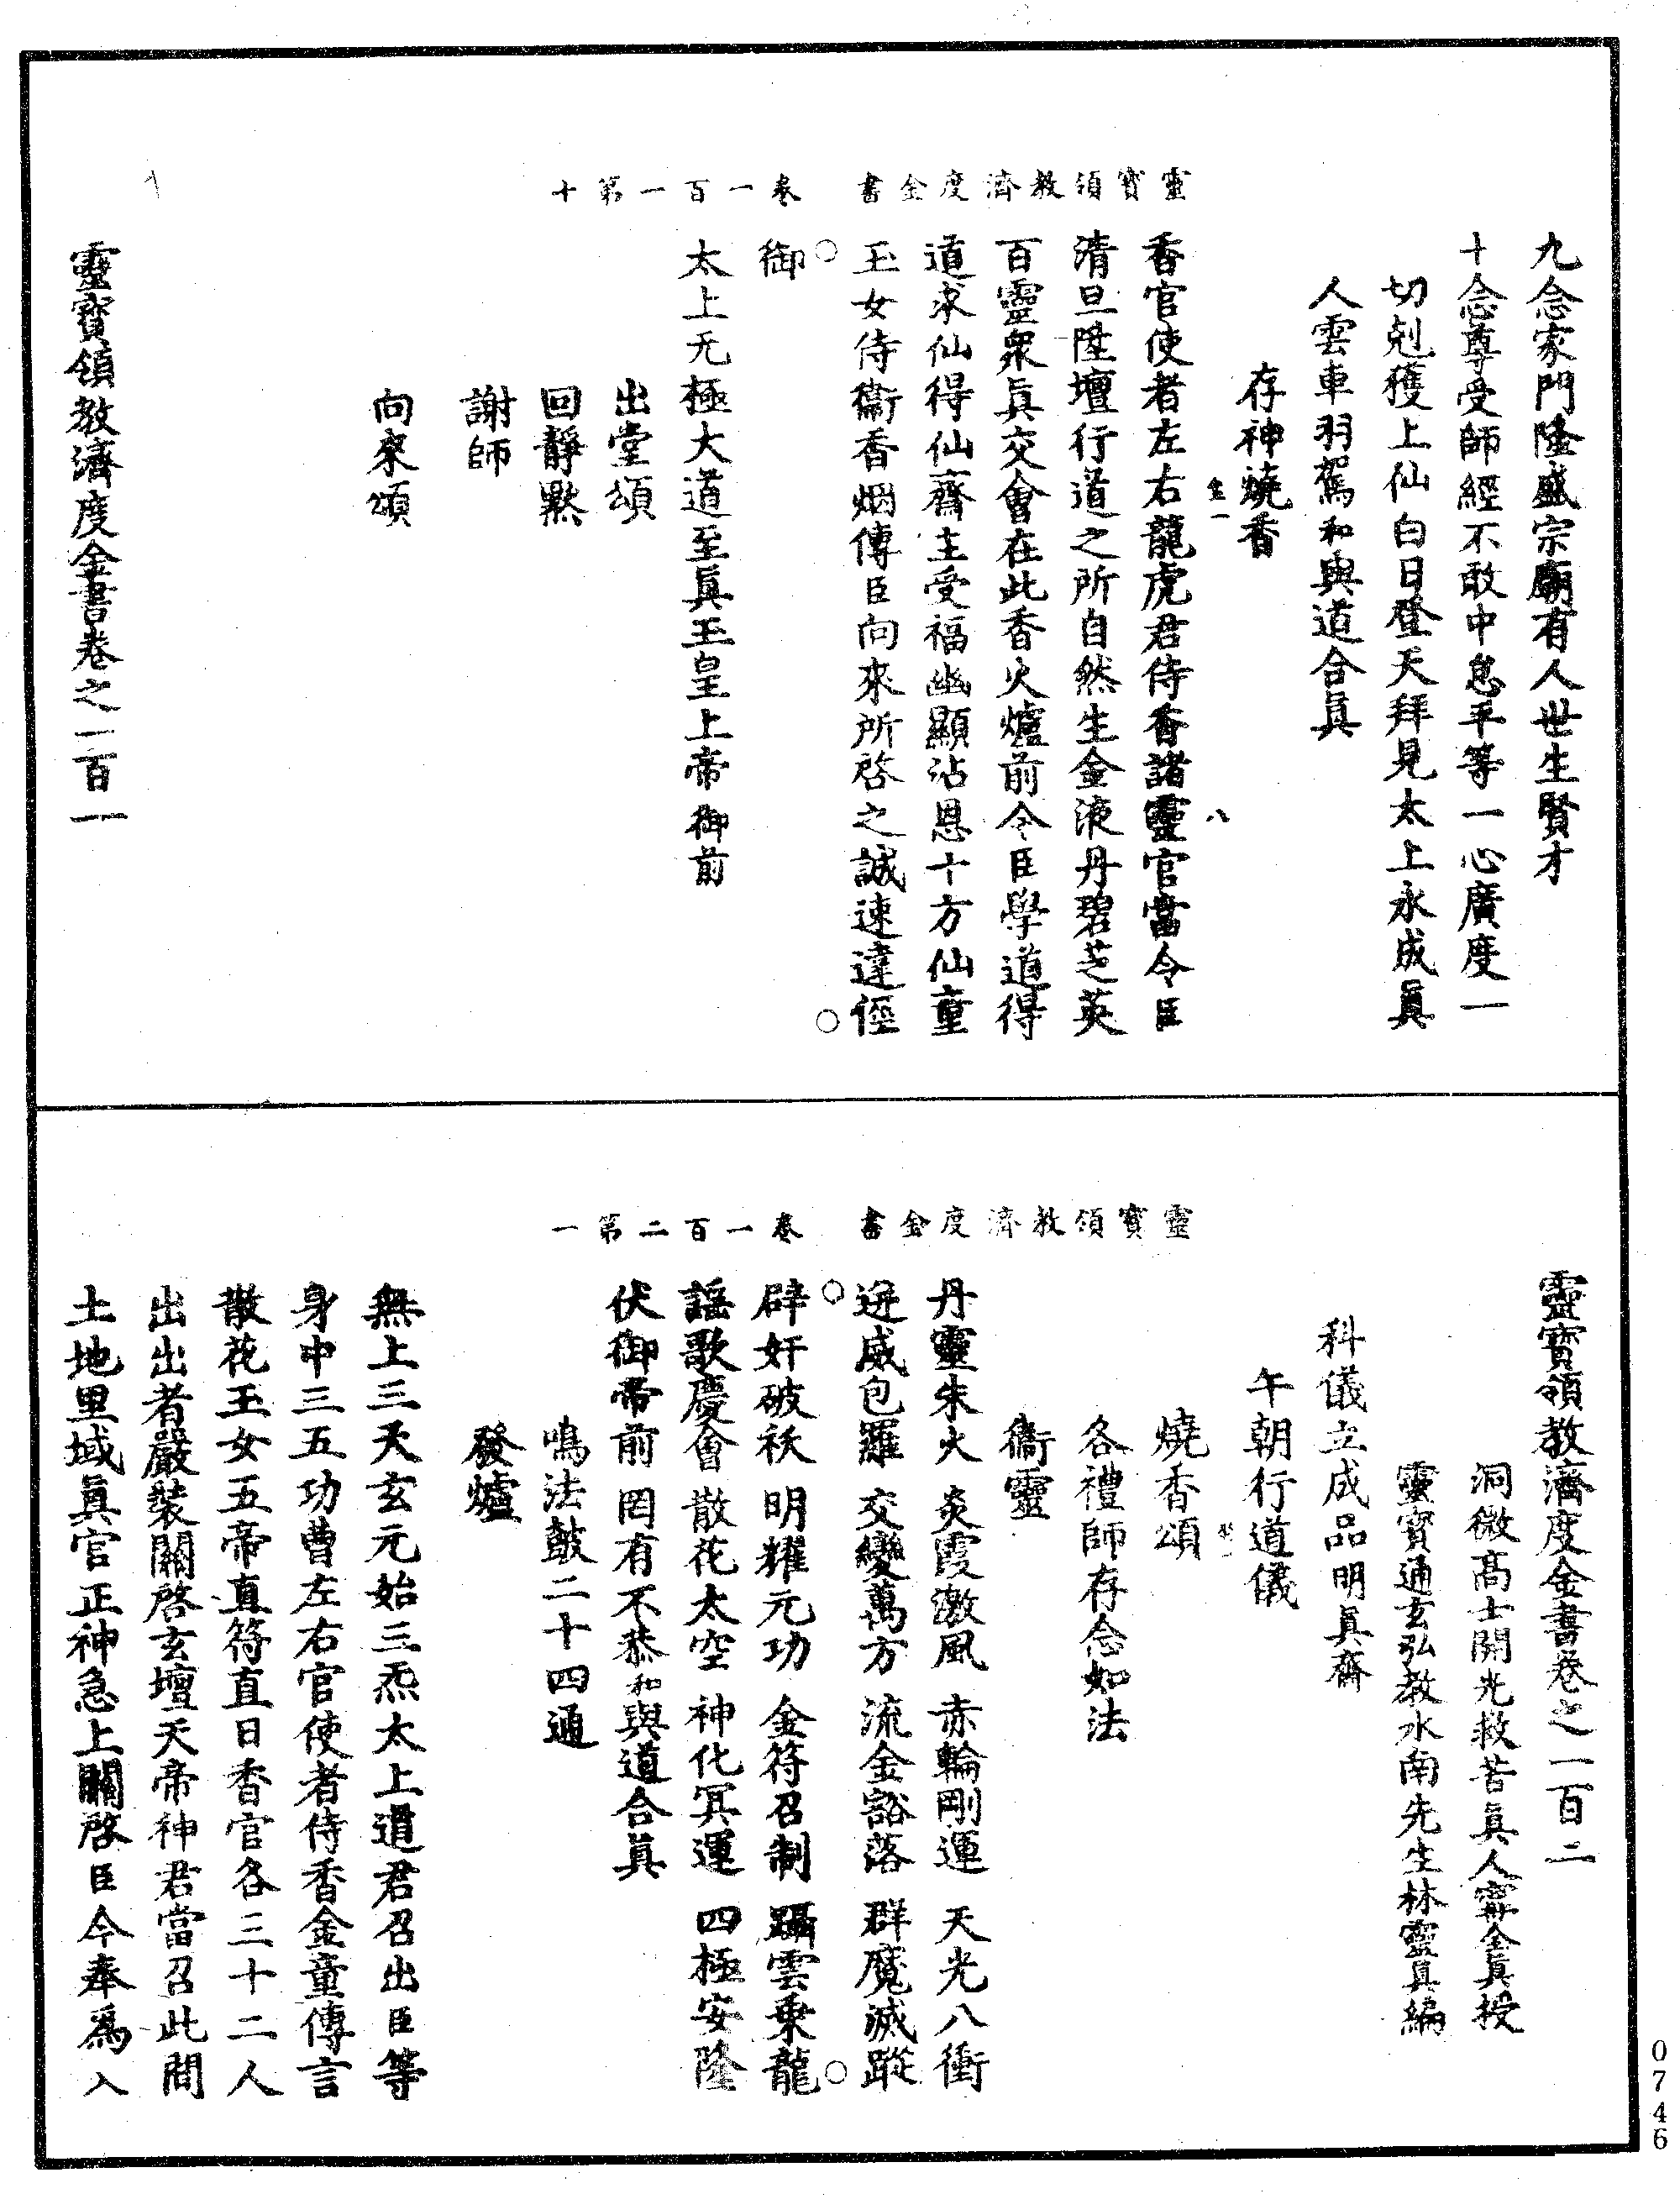 九念家門隆盛宗廟有人世生賢才
十念尊受師經不敢中怠平等一心廣度一
切剋獲上仙白日登天拜見太上永成眞
人雲車羽駕和與道合眞
存神燒香
八
香官使者左右龍虎君侍香諸靈官當令臣
清旦陞壇行道之所自然生金液丹碧芝英
百靈衆眞交會在此香火爐前令臣學道得
道求仙得仙齋主受福幽顯沾恩十方仙童
玉女侍衞香烟傳臣向來所啓之誠速達徑
御
太上无極大道至眞玉皇上帝御前
出堂頌
回靜默
謝師
向來頌
靈寶領教濟度金書卷之一百一
靈寶領教濟度金書　卷一百一第十
靈寶領教濟度金書卷之一百二
洞微高士開光救苦眞人甯全眞授
靈寶通玄弘教水南先生林靈眞編
科儀立成品明眞齋
午朝行道儀
燒香頌
各禮師存念如法
衞靈
丹靈朱火　炎霞激風　赤輪剛運　天光八衝
迸威包羅　交變萬方　流金豁落　群魔滅蹤
辟奸破袄　明耀元功　金符召制　躡雲乗龍
謡歌慶會　散花太空　神化冥運　四極安隆
伏御帝前　罔有不恭和與道合眞
鳴法鼓二十四通
發爐
無上三天玄元始三炁太上道君召出臣等
身中三五功曹左右官使者侍香金童傳言
散花玉女五帝直符直日香官各三十二人
出出者嚴裝關啓玄壇天帝神君當召此間
土地里域眞官正神急上關啓臣今奉爲入
靈寶領教濟度金書　卷一百二第一
0746